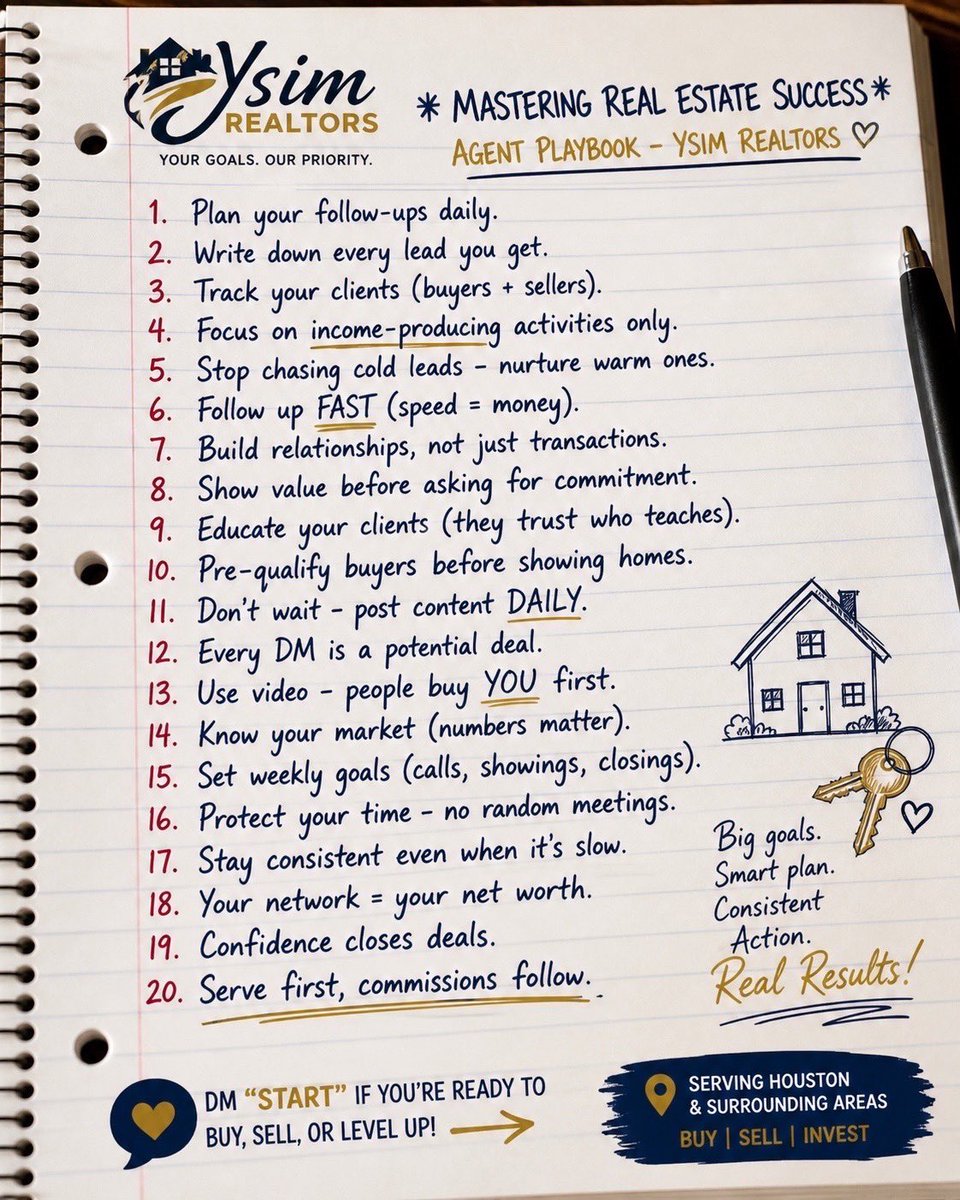 Ysim
REALTORS
YOUR GOALS. OUR PRIORITY.
* MASTERING REAL ESTATE SUCCESS *
AGENT PLAYBOOK – YSIM REALTORS ♡
1. Plan your follow-ups daily.
2. Write down every lead you get.
3. Track your clients (buyers + sellers).
4. Focus on income-producing activities only.
5. Stop chasing cold leads – nurture warm ones.
6. Follow up FAST (speed = money).
7. Build relationships, not just transactions.
8. Show value before asking for commitment.
9. Educate your clients (they trust who teaches).
10. Pre-qualify buyers before showing homes.
11. Don't wait – post content DAILY.
12. Every DM is a potential deal.
13. Use video – people buy YOU first.
14. Know your market (numbers matter).
15. Set weekly goals (calls, showings, closings).
16. Protect your time – no random meetings.
17. Stay consistent even when it's slow.
18. Your network = your net worth.
19. Confidence closes deals.
20. Serve first, commissions follow.
Big goals.
Smart plan.
Consistent
Action.
Real Results!
DM "START" IF YOU'RE READY TO
BUY, SELL, OR LEVEL UP!
SERVING HOUSTON
& SURROUNDING AREAS
BUY | SELL | INVEST